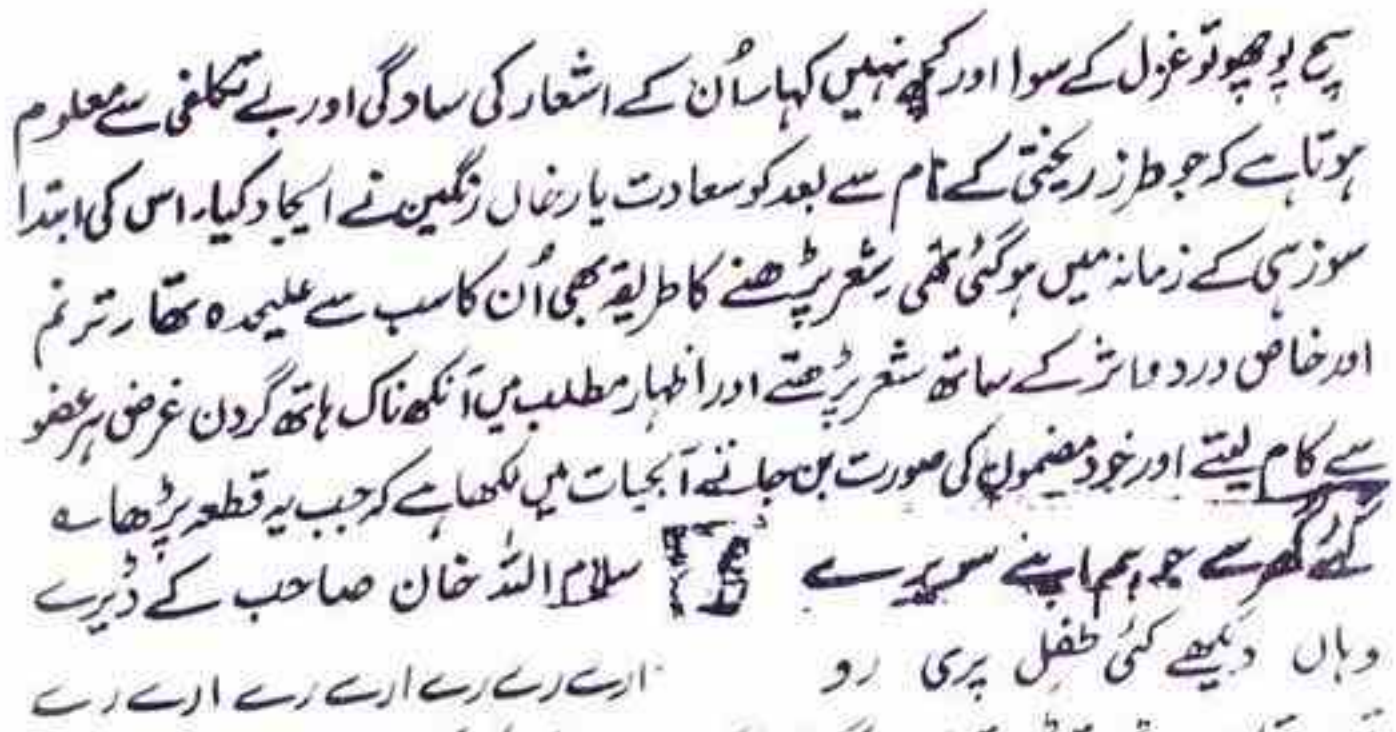 سچ پوچھو تو غزل کے سوا اور کچھ نہیں کہا۔ اُن کے اشعار کی سادگی اور بے تکلفی سے معلوم
ہوتا ہے کہ جو طرز ریختی کے نام سے بعد کو سعادت یار خاں رنگین نے ایجاد کیا۔ اس کی ابتدا
سوز ہی کے زمانہ میں ہو گئی تھی۔ شعر پڑھنے کا طریقہ بھی اُن کا سب سے علیحدہ تھا۔ ترنم
اور خاص درد و اثر کے ساتھ شعر پڑھتے اور اظہار مطلب میں آنکھ ناک ہاتھ گردن غرض ہر عضو
سے کام لیتے اور خود مضمون کی صورت بن جاتے آبحیات میں لکھا ہے کہ جب یہ قطعہ پڑھا ؎
گئے گھر سے جو ہم اپنے سویرے سلام اللہ خان صاحب کے ڈیرے
وہاں دیکھے کئی طفل پری رو ارے رے رے ارے رے ارے رے